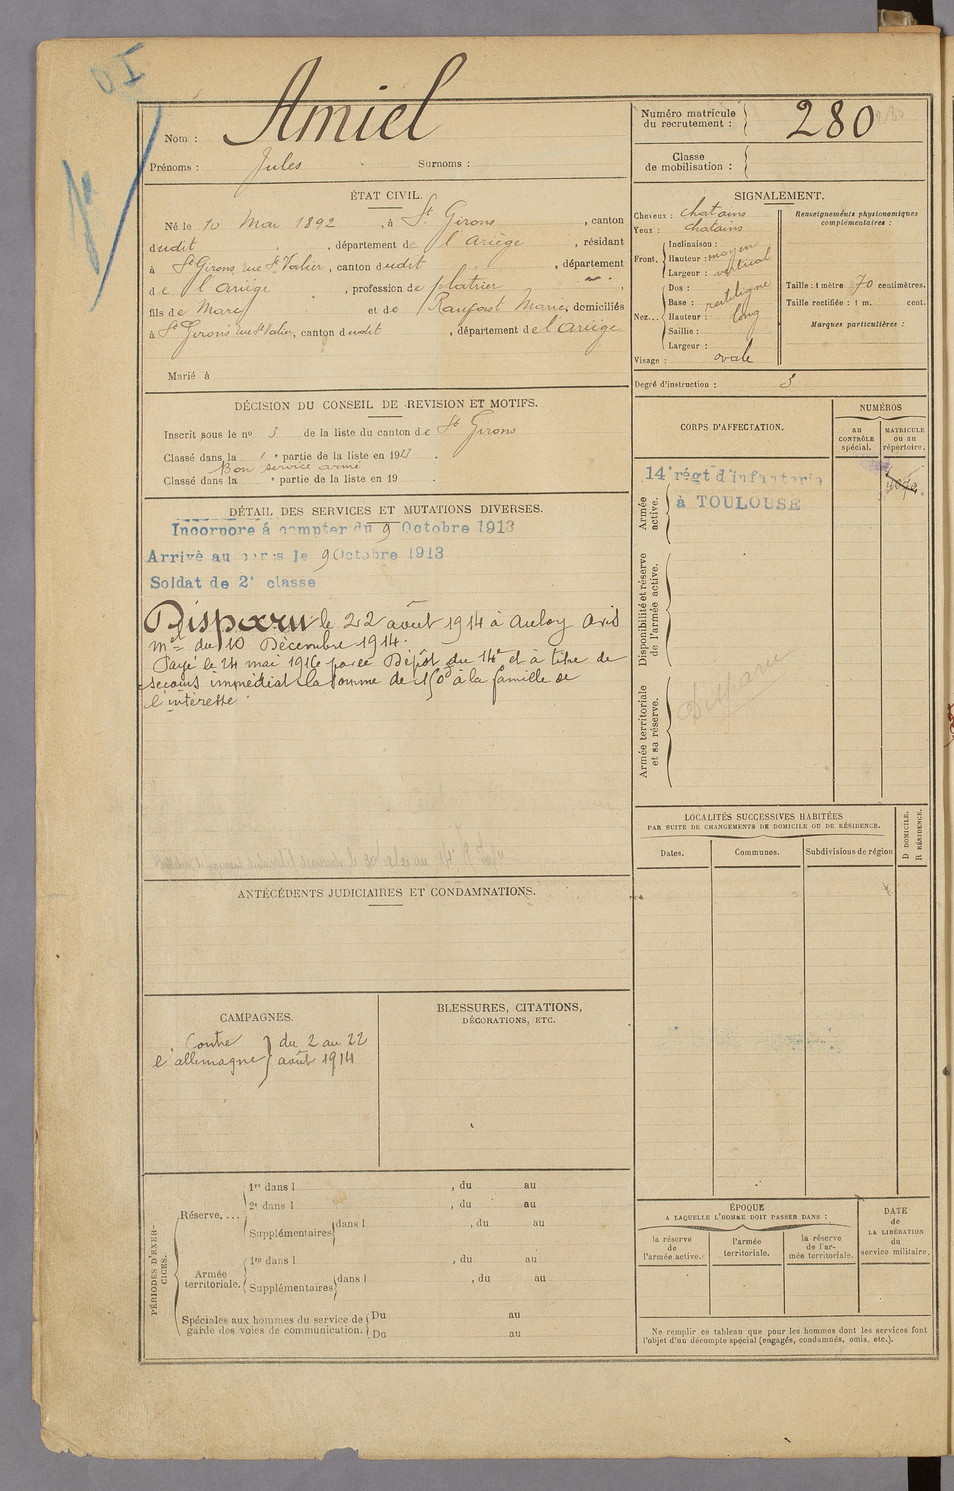 Nom : Amiel
Prénoms : Jules Surnoms :
Numéro matricule
du recrutement : 280
Classe
de mobilisation :
ÉTAT CIVIL.
Né le 10 Mai 1892, à St Girons, canton
dudit, département de l'Ariège, résidant
à St Girons, rue St Valier, canton dudit, département
de l'Ariège, profession de platrier,
fils de Marc et de Marie, domiciliés
à St Girons rue St Valier, canton dudit, département de l'Ariège
Marié à
SIGNALEMENT.
Cheveux : chatains
Yeux : chatains
Front.
Inclinaison :
Hauteur : moyen
Largeur : vertical
Nez...
Dos :
Base : rectiligne
Hauteur : long
Saillie :
Largeur :
Visage : ovale
Renseignements physionomiques
complémentaires :
Taille : 1 mètre 70 centimètres.
Taille rectifiée : 1 m. cent.
Marques particulières :
Degré d'instruction : 3
DÉCISION DU CONSEIL DE REVISION ET MOTIFS.
Inscrit sous le no 3 de la liste du canton de St Girons
Classé dans la 1 e partie de la liste en 19
Bon service armé
Classé dans la e partie de la liste en 19 .
CORPS D'AFFECTATION.
NUMÉROS
au
CONTRÔLE
spécial.
MATRICULE
ou au
répertoire.
Armée
active.
14e régt d'infanterie
à TOULOUSE
Disponibilité et réserve
de l'armée active.
Armée territoriale
et sa réserve.
Disparu
DÉTAIL DES SERVICES ET MUTATIONS DIVERSES.
Incorporé à compter du 9 Octobre 1913
Arrivé au corps le 9 Octobre 1913
Soldat de 2e classe
Disparu le 22 août 1914 à Anloy avis
mel du 10 Décembre 1914.
Payé le 24 mai 1916 par le Dépôt du 14e et à titre de
secours immédiat la somme de 150f à la famille de
l'intéressé.
LOCALITÉS SUCCESSIVES HABITÉES
PAR SUITE DE CHANGEMENTS DE DOMICILE OU DE RÉSIDENCE.
Dates. Communes. Subdivisions de région
D DOMICILE.
R RÉSIDENCE.
ANTÉCÉDENTS JUDICIAIRES ET CONDAMNATIONS.
CAMPAGNES.
Contre
l'allemagne
du 2 au 22
août 1914
BLESSURES, CITATIONS,
DÉCORATIONS, ETC.
PÉRIODES D'EXER-
CICES.
Réserve....
1re dans l , du au
2e dans l , du au
Supplémentaires dans l , du au
Armée
territoriale.
1re dans l , du au
Supplémentaires dans l , du au
Spéciales aux hommes du service de
garde des voies de communication.
Du au
Du au
ÉPOQUE
A LAQUELLE L'HOMME DOIT PASSER DANS :
la réserve
de
l'armée active.
l'armée
territoriale.
la réserve
de l'ar-
mée territoriale.
DATE
de
LA LIBÉRATION
du
service militaire.
Ne remplir ce tableau que pour les hommes dont les services font
l'objet d'un décompte spécial (engagés, condamnés, omis, etc.).